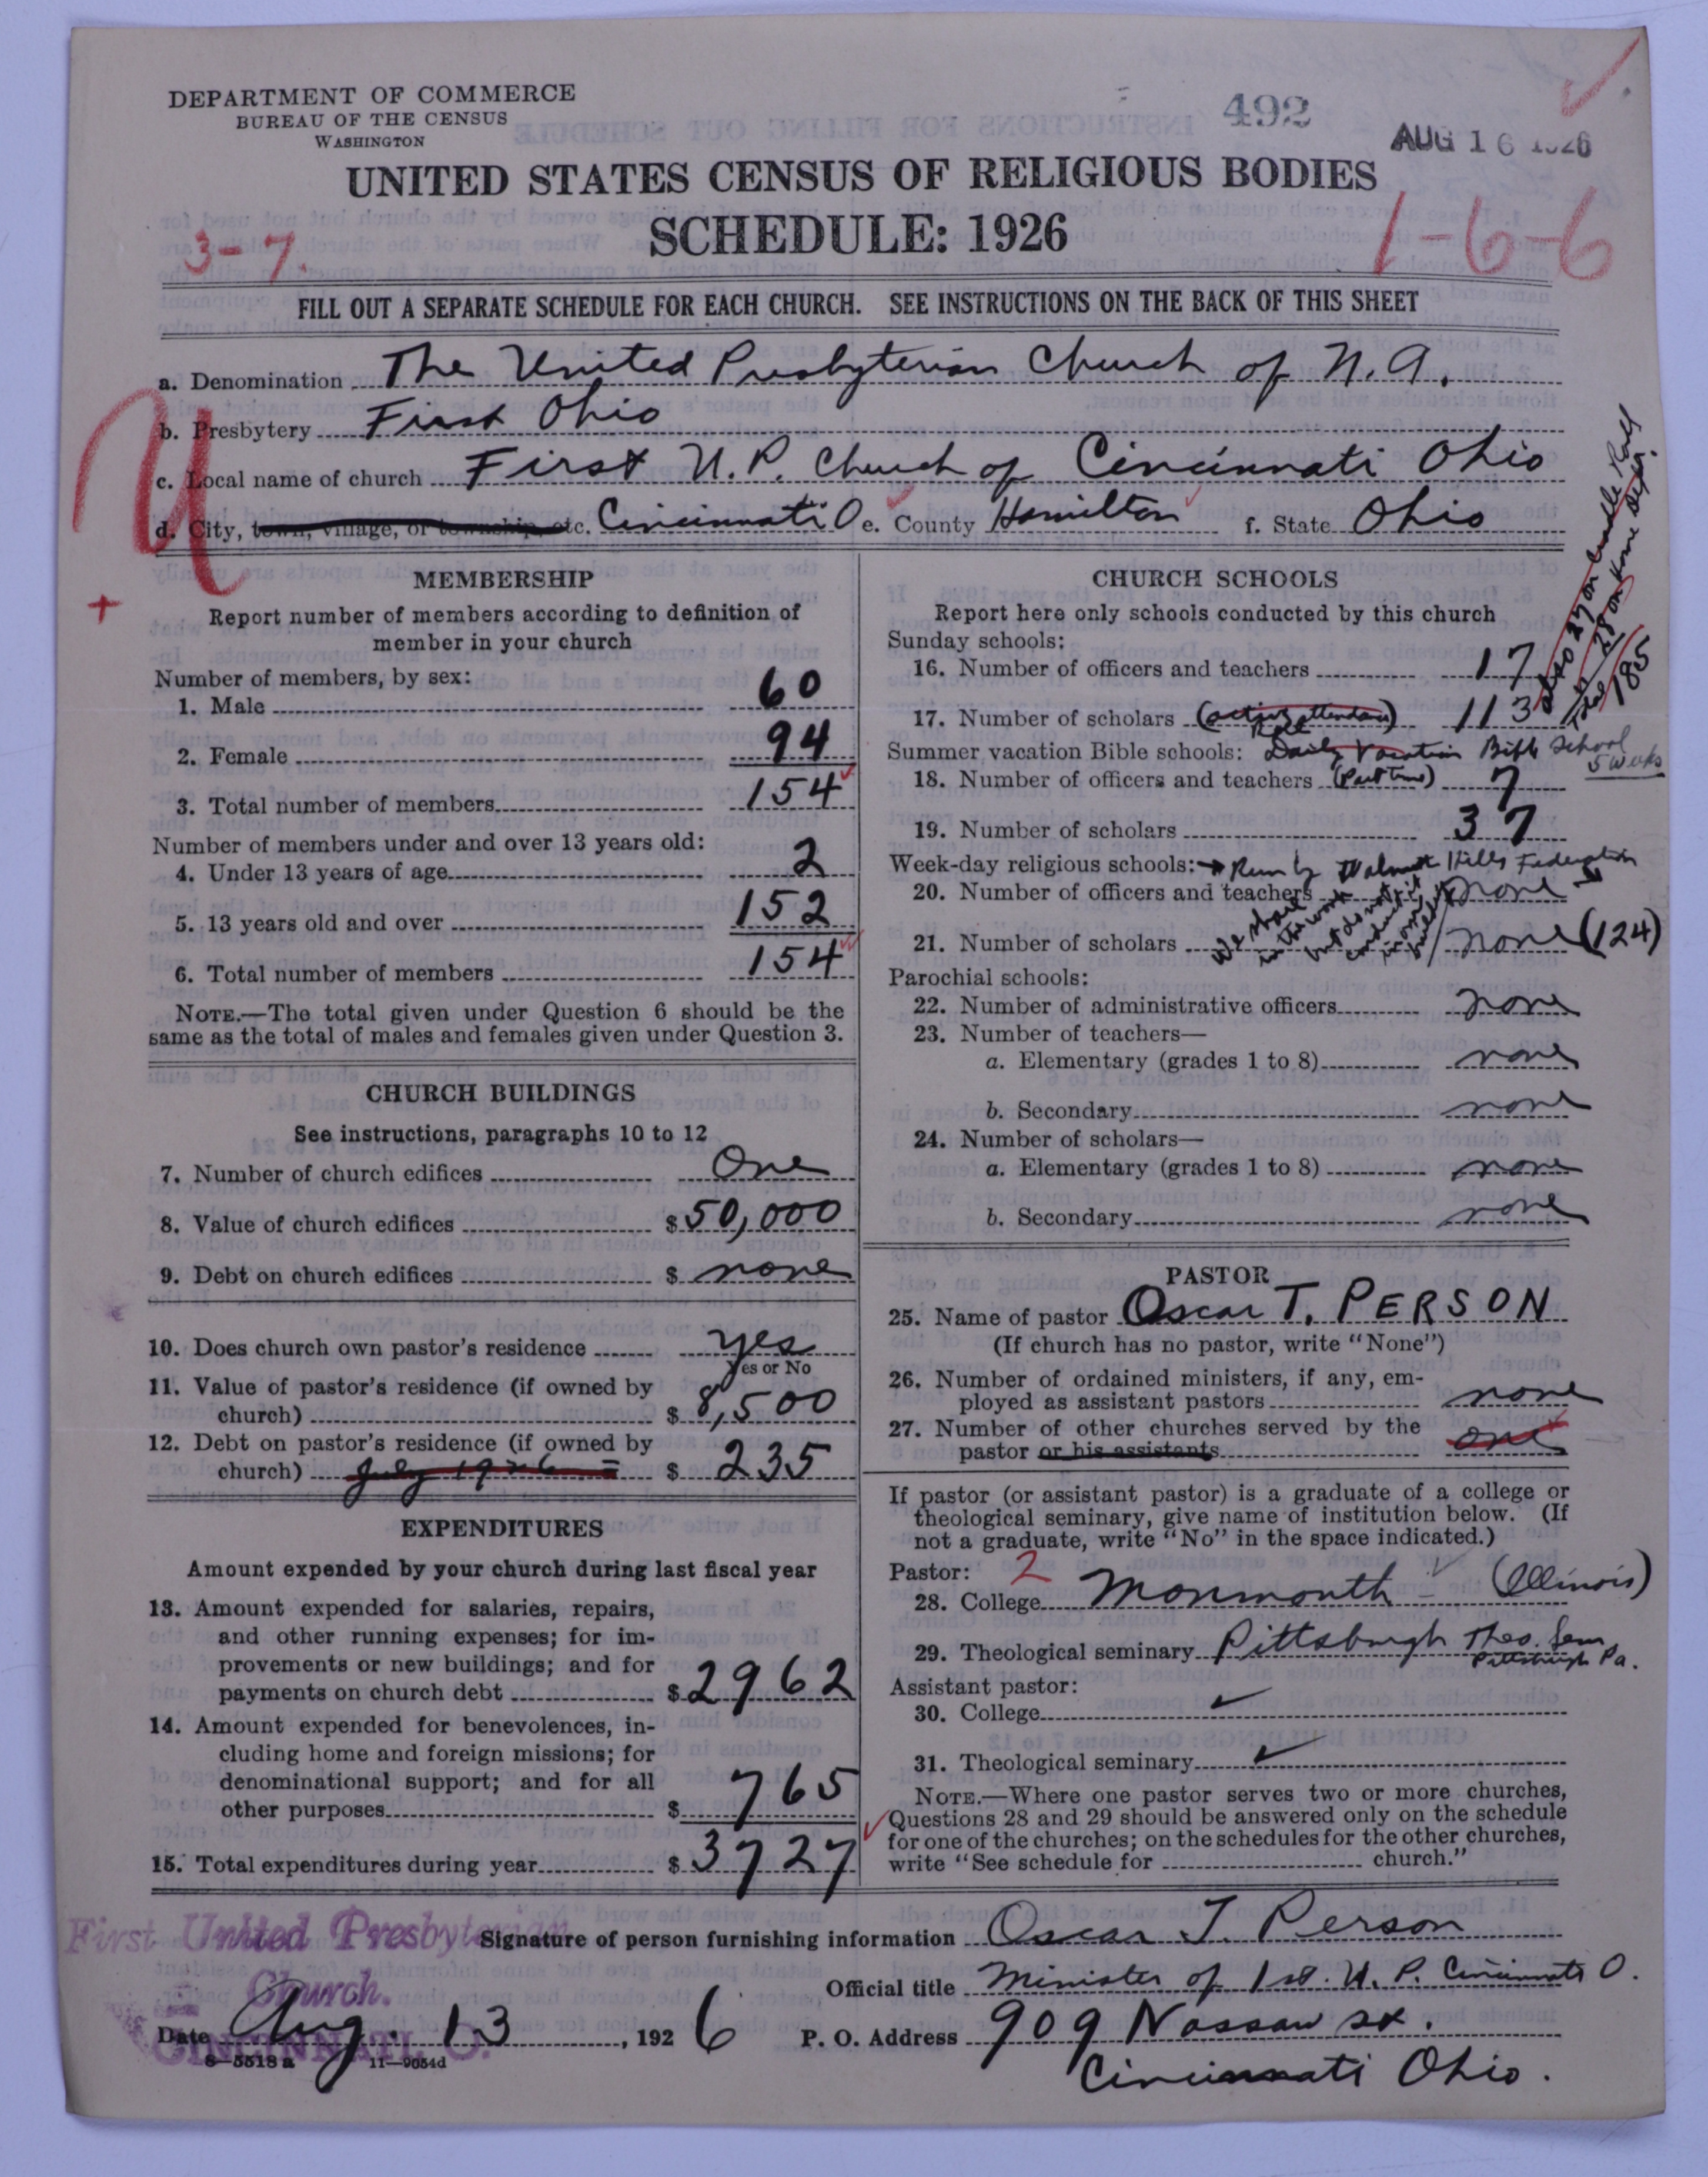 DEPARTMENT OF COMMERCE
BUREAU OF THE CENSUS
WASHINGTON
492
AUG 16 1926
UNITED STATES CENSUS OF RELIGIOUS BODIES
SCHEDULE: 1926
3-7.
1-6-6
FILL OUT A SEPARATE SCHEDULE FOR EACH CHURCH. SEE INSTRUCTIONS ON THE BACK OF THIS SHEET
a. Denomination The United Presbyterian Church of N.A.
b. Presbytery First Ohio
c. Local name of church First U.P. Church of Cincinnati Ohio
d. City, town, village, or township etc. Cincinnati O e. County Hamilton f. State Ohio
U
+
MEMBERSHIP
Report number of members according to definition of
member in your church
Number of members, by sex:
1. Male 60
2. Female 94
3. Total number of members 154
Number of members under and over 13 years old:
4. Under 13 years of age 2
5. 13 years old and over 152
6. Total number of members 154
NOTE.—The total given under Question 6 should be the
same as the total of males and females given under Question 3.
CHURCH BUILDINGS
See instructions, paragraphs 10 to 12
7. Number of church edifices One
8. Value of church edifices $50,000
9. Debt on church edifices $ none
10. Does church own pastor's residence yes
Yes or No
11. Value of pastor's residence (if owned by
church) $ 8,500
12. Debt on pastor's residence (if owned by
church) July 1926 $ 235
EXPENDITURES
Amount expended by your church during last fiscal year
13. Amount expended for salaries, repairs,
and other running expenses; for im-
provements or new buildings; and for
payments on church debt $2962
14. Amount expended for benevolences, in-
cluding home and foreign missions; for
denominational support; and for all
other purposes $ 765
15. Total expenditures during year $ 3727
CHURCH SCHOOLS
Report here only schools conducted by this church
Sunday schools:
16. Number of officers and teachers 17
17. Number of scholars (active attendance) 113
Roll
also 27 on Cradle Roll
" 28 on Home Dept.
Total 185
Summer vacation Bible schools: Daily Vacation Bible School
5 weeks
18. Number of officers and teachers (Part time) 7
19. Number of scholars 37
Week-day religious schools: → Run by Walnut Hills Federation
20. Number of officers and teachers none
21. Number of scholars none (124)
We share
in the work
but do not
conduct it
in our
building
Parochial schools:
22. Number of administrative officers none
23. Number of teachers—
a. Elementary (grades 1 to 8) none
b. Secondary none
24. Number of scholars—
a. Elementary (grades 1 to 8) none
b. Secondary none
PASTOR
25. Name of pastor Oscar T. PERSON
(If church has no pastor, write "None")
26. Number of ordained ministers, if any, em-
ployed as assistant pastors none
27. Number of other churches served by the
pastor or his assistants one
If pastor (or assistant pastor) is a graduate of a college or
theological seminary, give name of institution below. (If
not a graduate, write "No" in the space indicated.)
Pastor: 2
28. College Monmouth (Illinois)
29. Theological seminary Pittsburgh Theo. Sem
Pittsburgh Pa.
Assistant pastor:
30. College
31. Theological seminary
NOTE.—Where one pastor serves two or more churches,
Questions 28 and 29 should be answered only on the schedule
for one of the churches; on the schedules for the other churches,
write "See schedule for church."
First United Presbyterian
Church.
CINCINNATI, O.
Signature of person furnishing information Oscar T. Person
Official title Minister of 1st. U. P. Cincinnati O.
Date Aug. 13, 1926 P. O. Address 909 Nassau st.
Cincinnati Ohio.
8-5518a 11-9054d